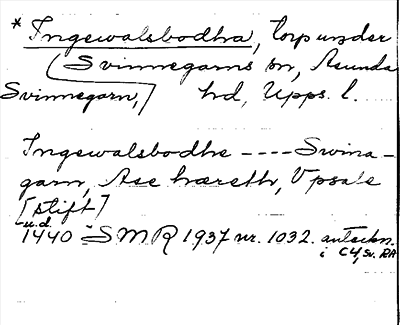 * Ingewalsbodha, torp under
(Svinnegarns sn, Asunda
Svinnegarn,] hd, Upps. l.
Ingewalsbodhe ---- Swina-
garn, Ase hæreth, Vpsale
[stift]
u.d.
1440 SMR 1937 nr. 1032. anteckn.
i C4, Sv. RA